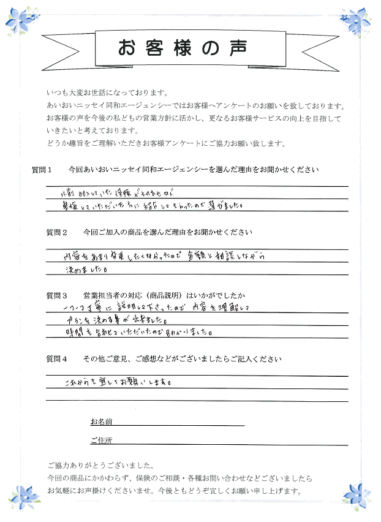 お客様の声
いつも大変お世話になっております。
あいおいニッセイ同和エージェンシーではお客様へアンケートのお願いを致しております。
お客様の声を今後の私どもの営業方針に活かし、更なるお客様サービスの向上を目指して
いきたいと考えております。
どうか趣旨をご理解いただきお客様アンケートにご協力お願い致します。
質問1 今回あいおいニッセイ同和エージェンシーを選んだ理由をお聞かせください
質問2 今回ご加入の商品を選んだ理由をお聞かせください
内容をあまり変更したくなかったので 金額と相談しながら
決めました。
質問3 営業担当者の対応（商品説明）はいかがでしたか
一つ一つ丁寧に説明して下さったので 内容を理解して
プランを決める事が出来ました。
時間も合わせていただいたので助かりました。
質問4 その他ご意見、ご感想などがございましたらご記入ください
これからも宜しくお願いします。
お名前
ご住所
ご協力ありがとうございました。
今回の商品にかかわらず、保険のご相談・各種お問い合わせなどございましたら
お気軽にお声掛けくださいませ。今後ともどうぞ宜しくお願い申し上げます。